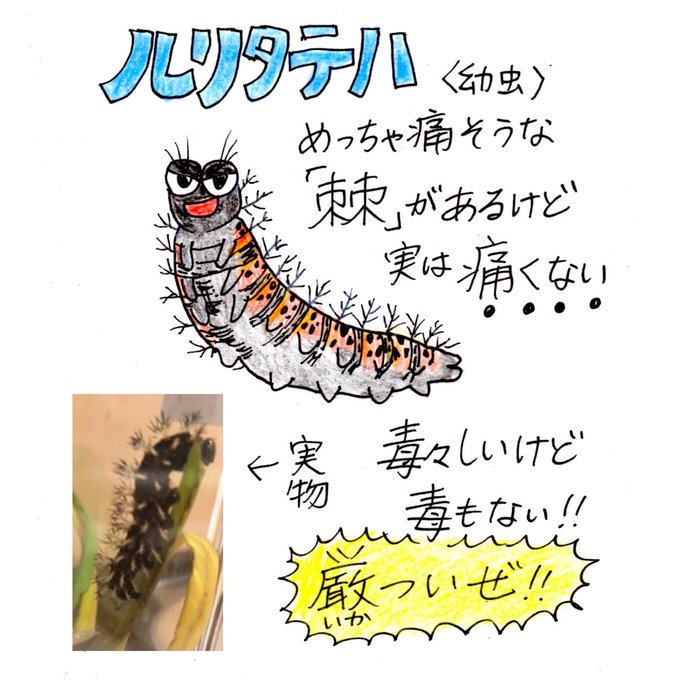 ルリタテハ〈幼虫〉
めっちゃ痛そうな
「棘」があるけど
実は痛くない
←実物
毒々しいけど
毒もない!!
厳ついぜ!!
いか